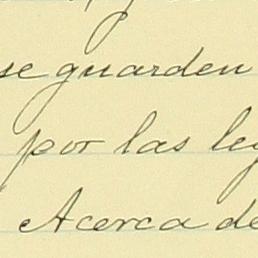 se guarden
por las ley
Acerca de